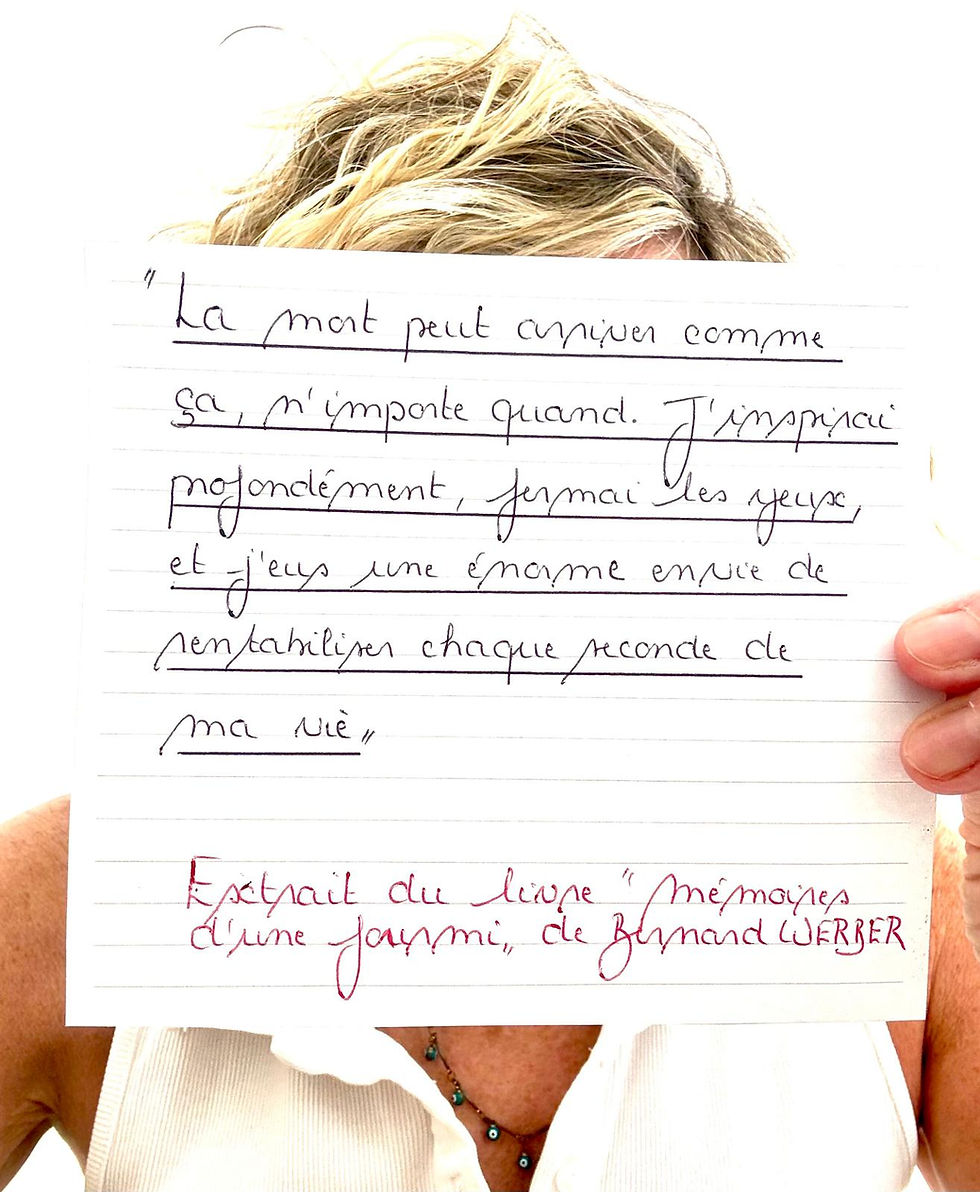 "La mort peut arriver comme
ça, n'importe quand. J'inspirai
profondément, fermai les yeux,
et j'eus une énorme envie de
rentabiliser chaque seconde de
ma vie"
Extrait du livre "mémoires
d'une fourmi" de Bernard WERBER